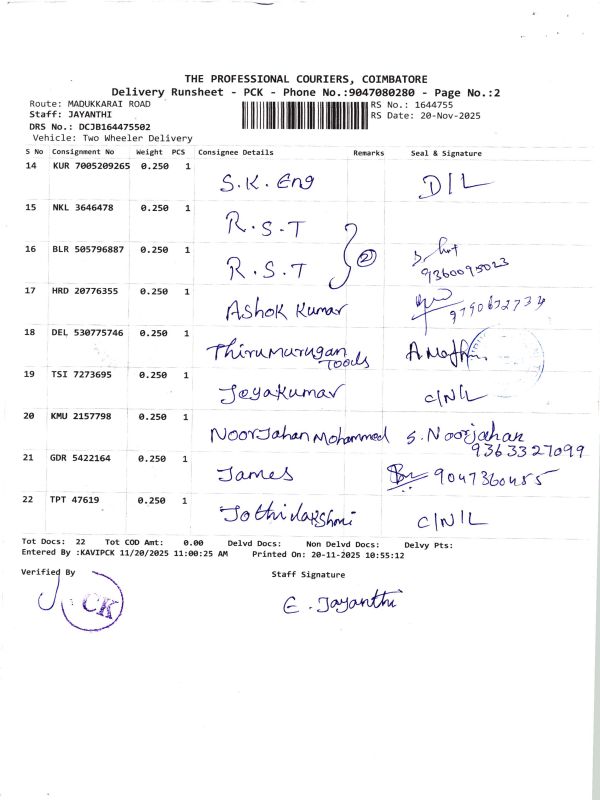 THE PROFESSIONAL COURIERS, COIMBATORE
Delivery Runsheet - PCK - Phone No.:9047080280 - Page No.:2
Route: MADUKKARAI ROAD RS No.: 1644755
Staff: JAYANTHI RS Date: 20-Nov-2025
DRS No.: DCJB164475502
Vehicle: Two Wheeler Delivery
S No Consignment No Weight PCS Consignee Details Remarks Seal & Signature
14 KUR 7005209265 0.250 1 S.K. Eng D/L
15 NKL 3646478 0.250 1 R.S.T
16 BLR 505796887 0.250 1 R.S.T (2) 9360095023
17 HRD 20776355 0.250 1 Ashok Kumar 9790632734
18 DEL 530775746 0.250 1 Thirumurugan Tools
19 TSI 7273695 0.250 1 Jeyakumar C/N/L
20 KMU 2157798 0.250 1 NoorJahan Mohammed S. Noorjahan 9363327099
21 GDR 5422164 0.250 1 James 9047360455
22 TPT 47619 0.250 1 Jothilakshmi C/N/L
Tot Docs: 22 Tot COD Amt: 0.00 Delvd Docs: Non Delvd Docs: Delvy Pts:
Entered By :KAVIPCK 11/20/2025 11:00:25 AM Printed On: 20-11-2025 10:55:12
Verified By Staff Signature
CK E. Jayanthi